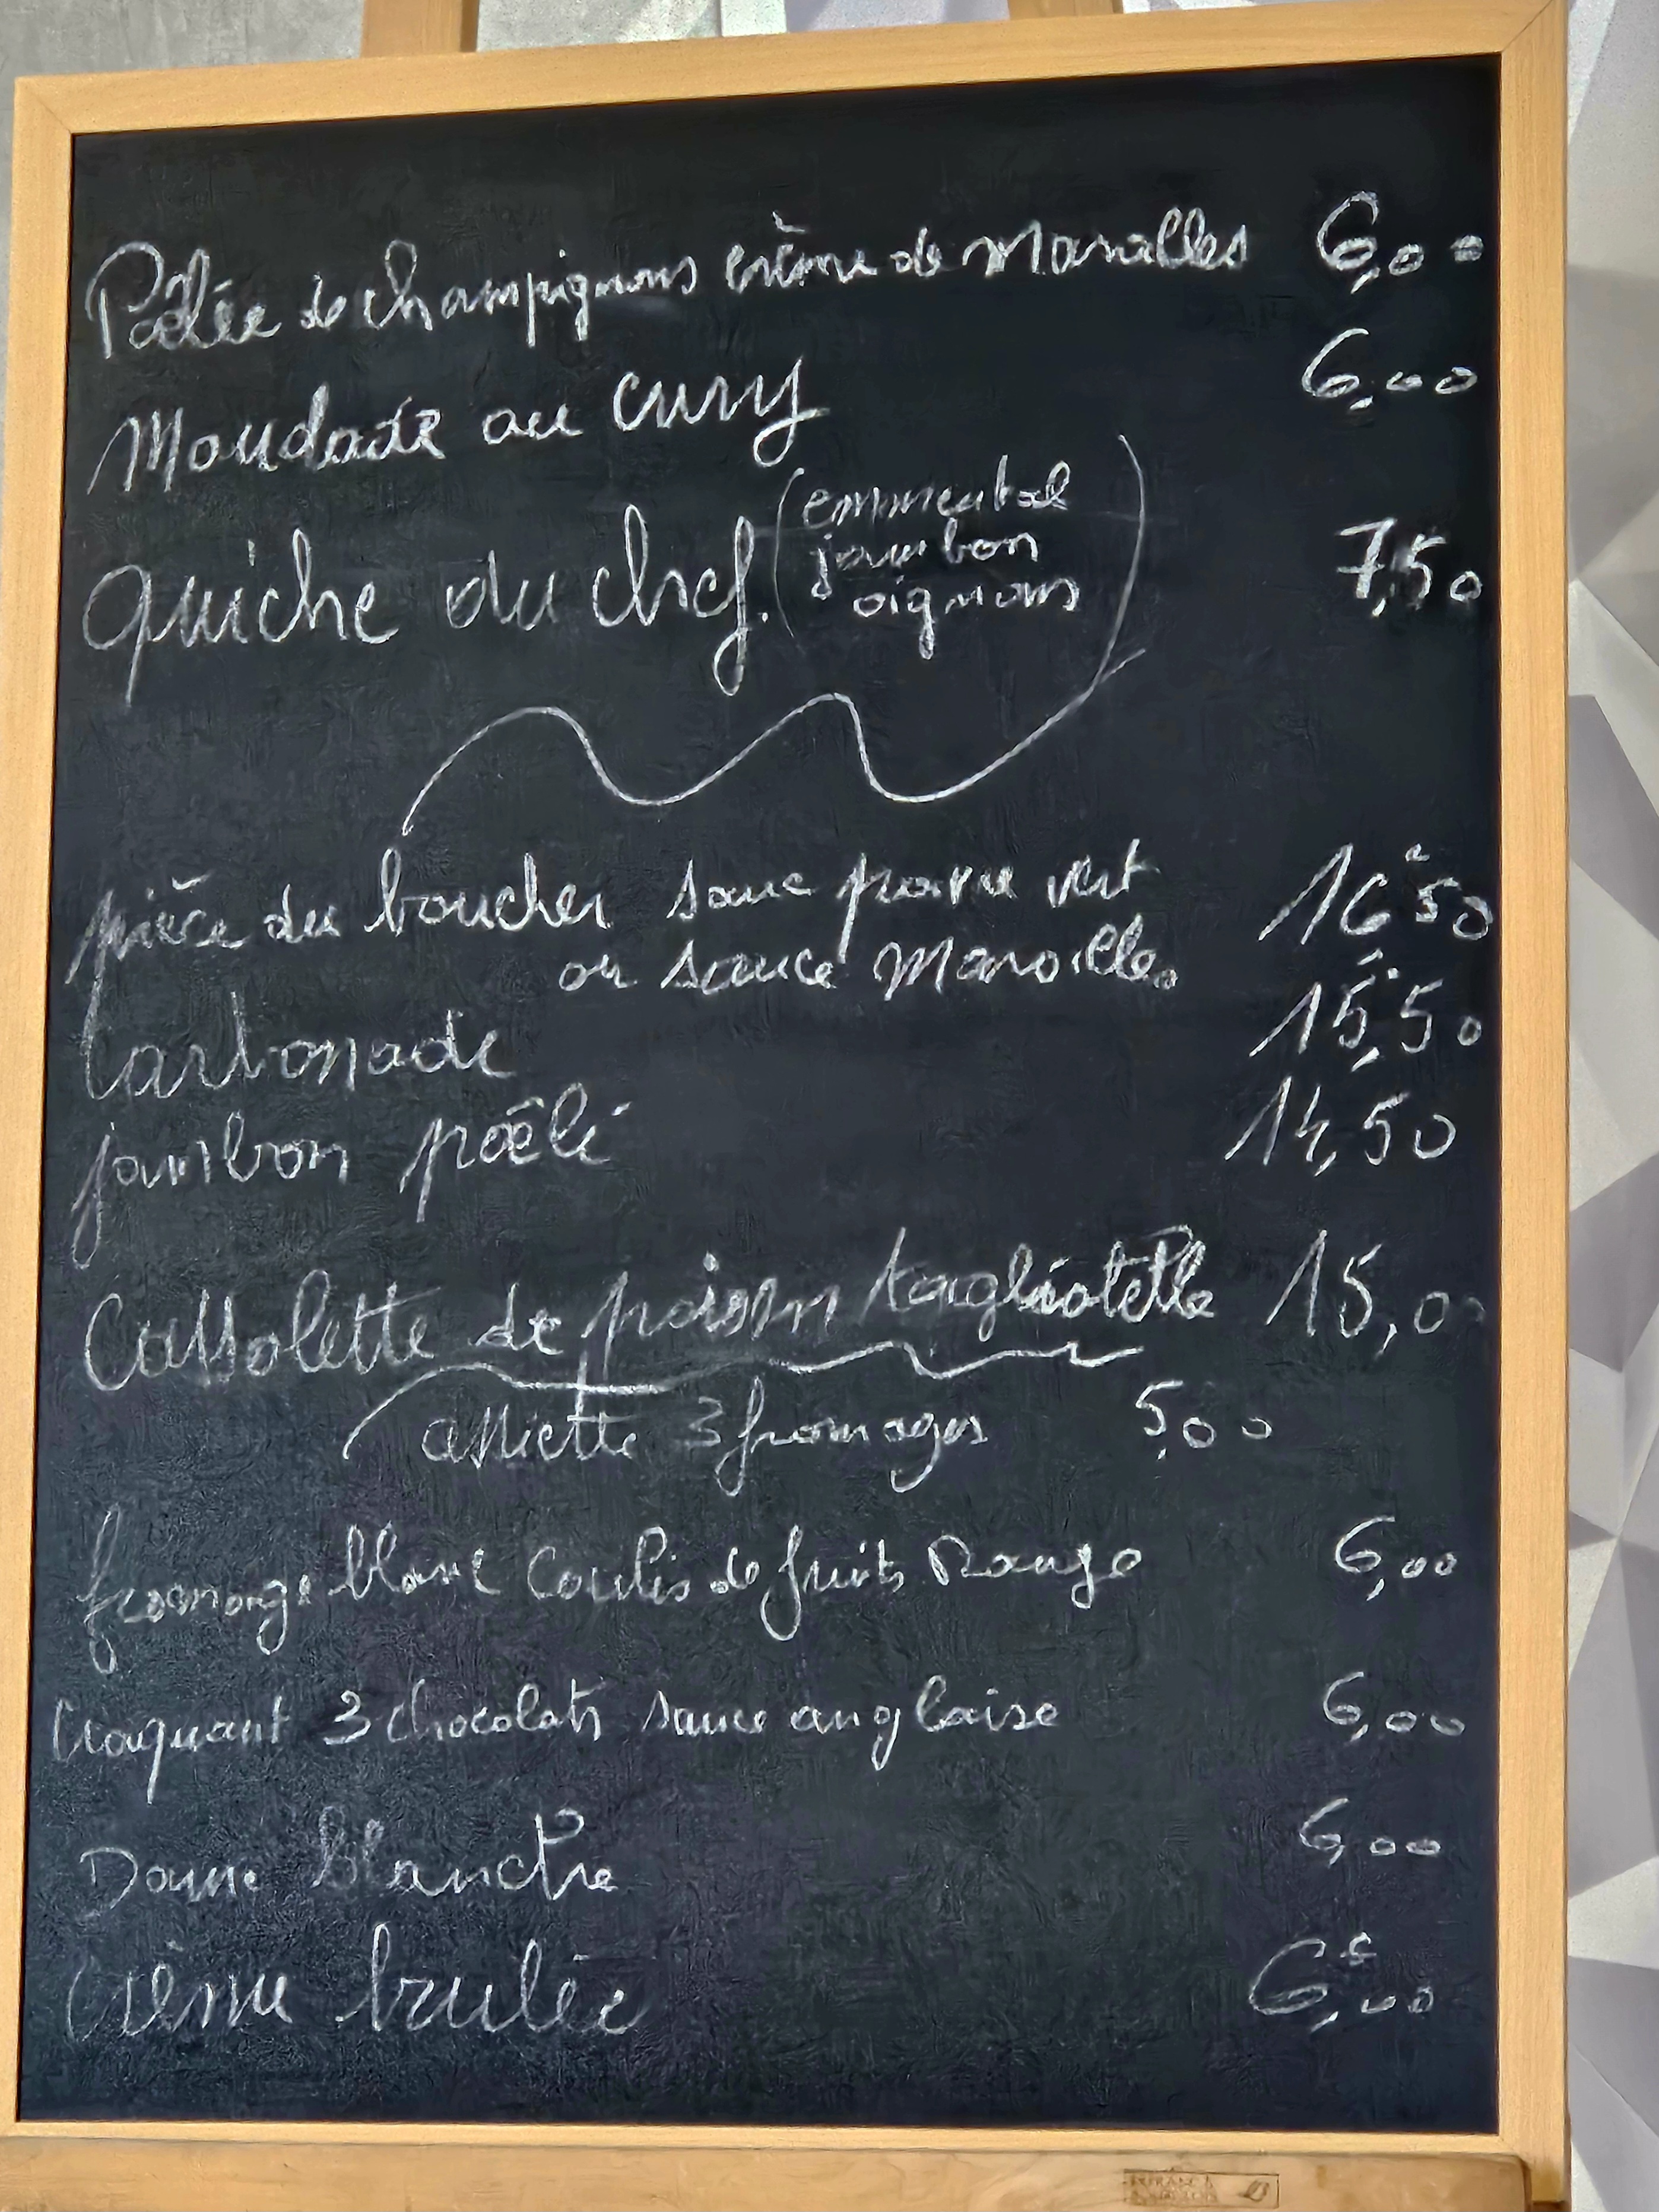 Poêlée de champignons crème de Maroilles 6,00
Mouclade au curry 6,00
quiche du chef. (emmental
jambon
oignons) 7,50
pièce du boucher sauce poivre vert 16,50
ou sauce Maroilles
Carbonade 15,50
jambon poêlé 14,50
Cassolette de poisson tagliatelle 15,00
assiette 3 fromages 5,00
fromage blanc Coulis de fruits Rouge 6,00
Croquant 3 chocolats sauce anglaise 6,00
Dame blanche 6,00
Crème brulée 6,00